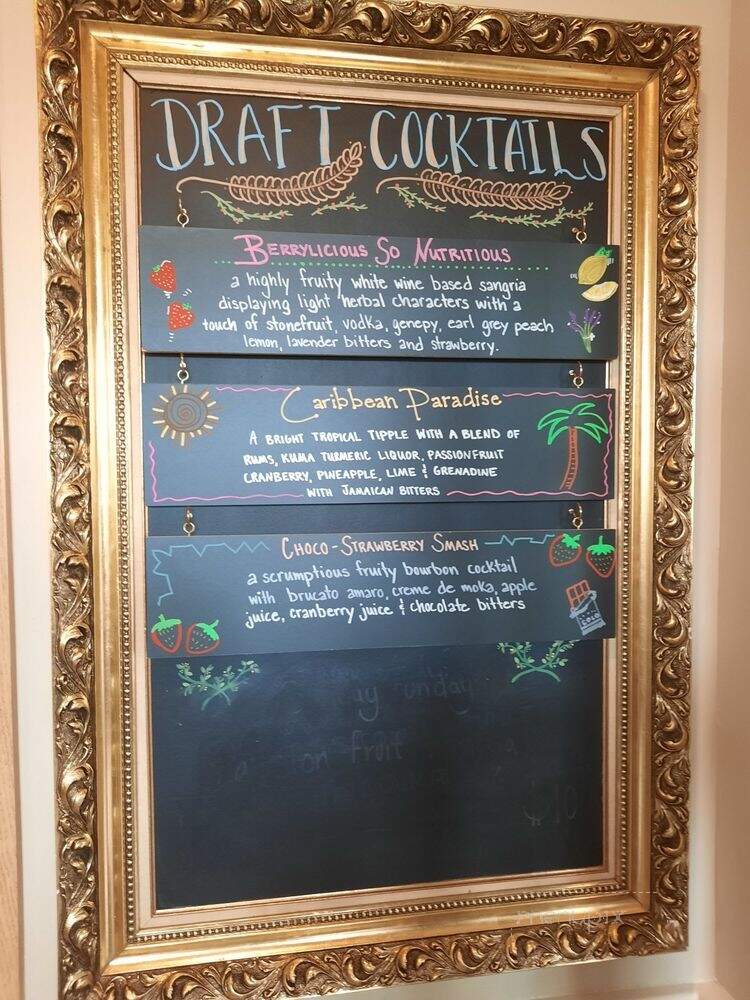 DRAFT COCKTAILS
BERRYLICIOUS SO NUTRITIOUS
a highly fruity white wine based sangria
displaying light herbal characters with a
touch of stonefruit, vodka, genepy, earl grey peach
lemon, lavender bitters and strawberry.
Caribbean Paradise
A BRIGHT TROPICAL TIPPLE WITH A BLEND OF
RUMS, KUMA TURMERIC LIQUOR, PASSIONFRUIT
CRANBERRY, PINEAPPLE, LIME & GRENADINE
WITH JAMAICAN BITTERS
CHOCO-STRAWBERRY SMASH
a scrumptious fruity bourbon cocktail
with brucato amaro, creme de moka, apple
juice, cranberry juice & chocolate bitters
fruit
$10